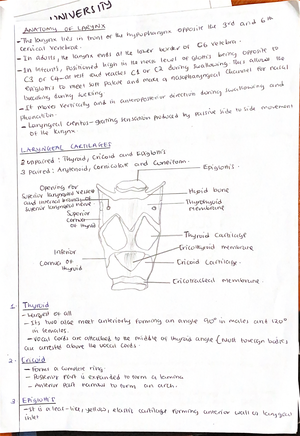 UNIVERSITY
ANATOMY OF LARYNX
- The larynx lies in front of the hypopharynx opposite the 3rd and 6th
cervical vertebrae.
- In adults, the larynx ends at the lower border of C6 vertebra.
- In infants, positioned high in the neck level of glottis being opposite to
C3 or C4 at rest and reaches C1 or C2 during swallowing. This allows the
epiglottis to meet soft palate and make a nasopharyngeal channel for nasal
breathing during sucking.
- It moves vertically and in anteroposterior direction during swallowing and
phonation.
- Laryngeal crepitus - grating sensation produced by passive side to side movement
of the larynx.
LARYNGEAL CARTILAGES
2 unpaired: Thyroid, Cricoid and Epiglottis
3 Paired: Arytenoid, Corniculate and Cuneiform.
Epiglottis.
Opening for
Superior laryngeal vessels
and internal branch of
superior laryngeal nerve
Superior
cornu
of thyroid
Inferior
Cornu of
thyroid
Hyoid bone
Thyrohyoid
membrane
Thyroid cartilage
Cricothyroid membrane
Cricoid cartilage.
Cricotracheal membrane.
1. Thyroid
- Largest of all
- Its two alae meet anteriorly forming an angle 90° in males and 120°
in females.
- Vocal cords are attached to the middle of thyroid angle (Most foreign bodies
are arrested above the vocal cords
2. Cricoid
- Forms a complete ring.
- Posterior part is expanded to form a lamina
- Anterior part narrow to form an arch.
3 Epiglottis
- It is a leaf-like, yellow, elastic cartilage forming anterior wall of laryngeal
inlet